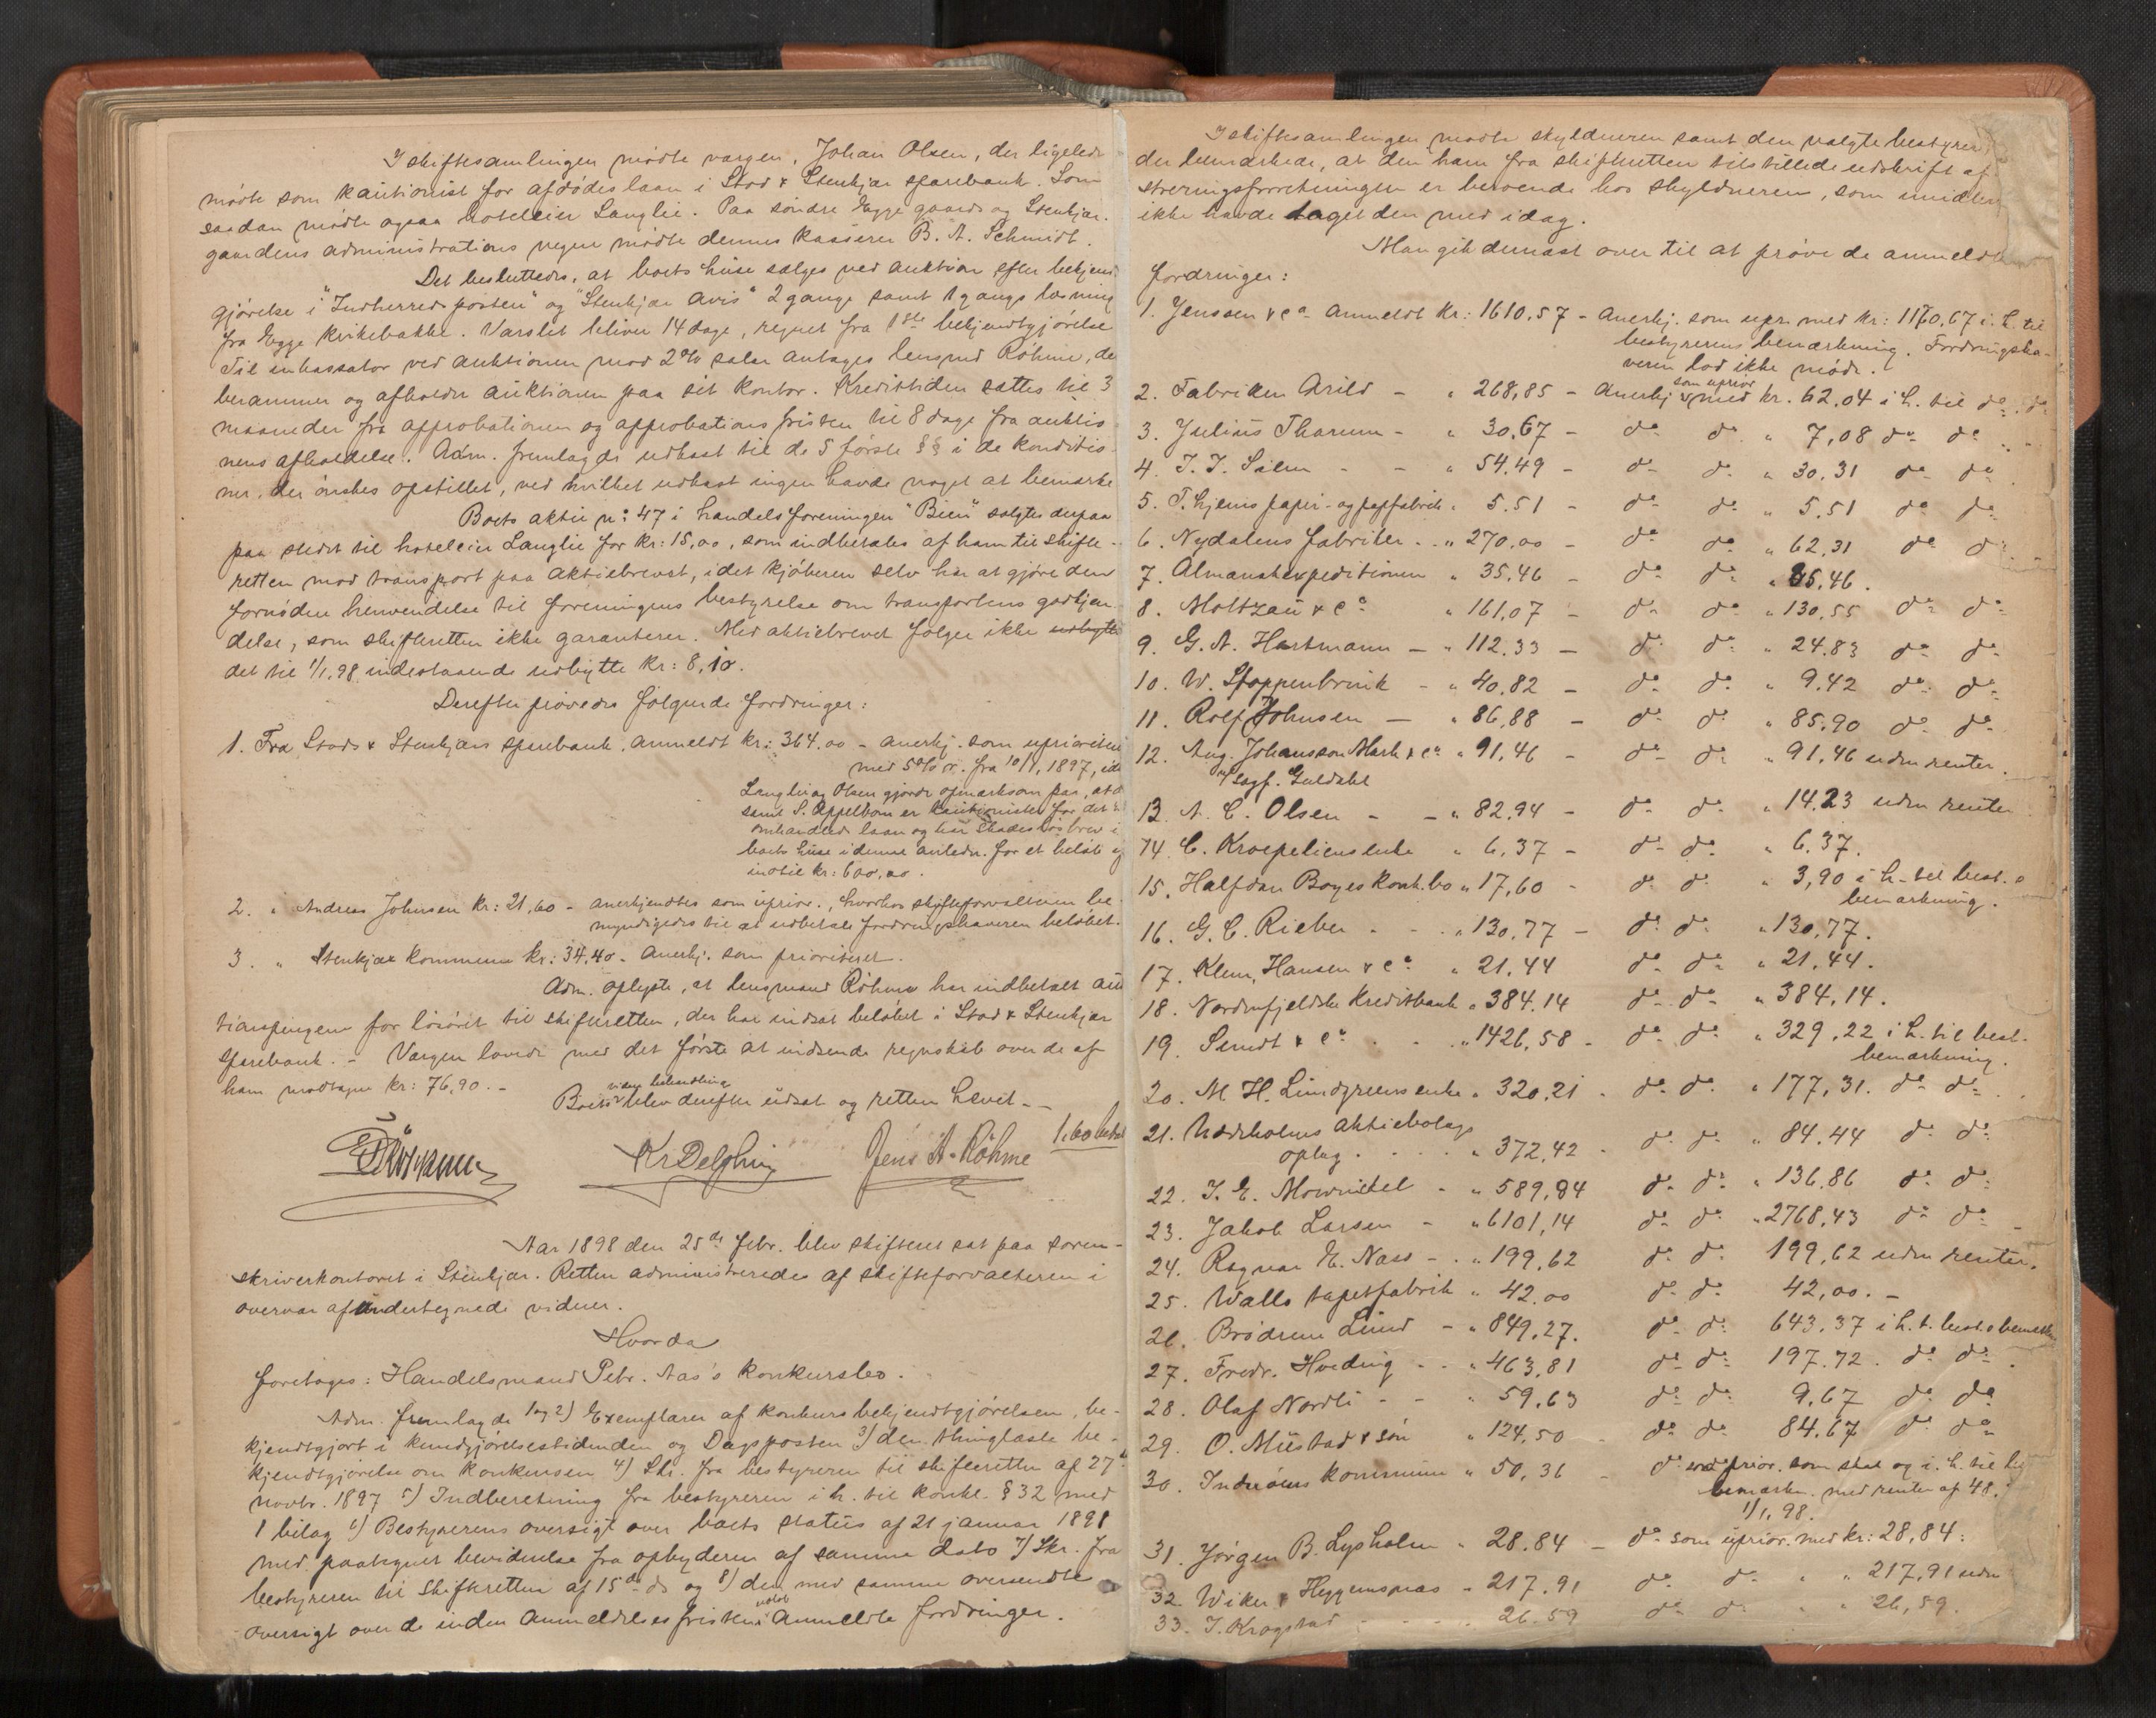 I skiftesamlingen mødte værgen, Johan Olsen, der ligeledes
mødte som kautionist for afdødes laan i Stod & Stenkjær sparebank. Som
saadan mødte ogsaa hoteleier Langlie. Paa søndre Egge gaards og Stenkjær-
gaardens administrations vegne mødte dennes kasserer B. A. Schmidt.
Det besluttedes, at boets huse sælges ved auktion efter bekjendt
gjørelse i "Indherredsposten" og "Stenkjær Avis" 2 gange samt 1 gangs læsning
fra Egge kirkebakke. Varslet bliver 14 dage, regnet fra 1ste bekjendtgjørelse
Til inkassator ved auktionen mod 2% salær antages lensmd Röhme, der
berammer og afholder auktionen paa sit kontor. Kredittiden sattes til 3
maaneder fra approbationen og approbationsfristen til 8 dage fra auktio
nens afholdelse. Adm. fremlagde udkast til de 5 første §§ i de konditio
ner, der ønskes opstillet, ved hvilket udkast ingen havde noget at bemærke
Boets aktie no 47 i handelsforeningen "Bien" solgtes derpaa
paa stedet til hoteleier Langlie for kr: 15,00, som indbetales af ham til skifte-
retten mod transport paa aktiebrevet, idet kjøberen selv har at gjøre den
fornødne henvendelse til foreningens bestyrelse om transportens godkjen-
delse, som skifteretten ikke garanterer. Med aktiebrevet følger ikke udbytte
det til 1/1, 98 indestaaende udbytte kr: 8,10.
Derefter prøvedes følgende fordringer:
1. Fra Stods & Stenkjærs sparebank, anmeldt kr: 364.00 - anerkj. som uprioriteret
med 5% r. fra 10/1, 1897, idet
Langlie og Olsen gjorde opmærksom paa, at de
samt S. Appelbom er kautionister for det
omhandlede laan og har skadesløsbrev i
boets huse i denne anledn. for et beløb
indtil kr: 600,00.
2. " Andreas Johnsen kr: 21,60 - anerkjendtes som uprior., hvorhos skifteforvalteren be
myndigedes til at udbetale fordringshaveren beløbet.
3. " Stenkjær kommune kr: 34,40 - anerkj. som prioriteret.
Adm. oplyste, at lensmand Röhme har indbetalt auk
tionspengene for løsøret til skifteretten, der har indsat beløbet i Stod & Stenkjær
sparebank. - Værgen lovede med det første at indsende regnskab over de af
ham modtagne kr: 76,90. -
videre behandling
Boets blev derefter udsat og retten hævet. -
1,60 betalt
Kr Delphin Jens A. Röhme
Aar 1898 den 25de febr. blev skifteret sat paa soren-
skriverkontoret i Stenkjær. Retten administreredes af skifteforvalteren i
overvær af undertegnede vidner.
Hvorda
foretoges: Handelsmand Petr. Aas's konkursbo.
Adm. fremlagde 1 og 2) Exemplarer af konkursbekjendtgjørelsen, be-
kjendtgjort i kundgjørelsestidenden og Dagsposten 3) den thinglæste be-
kjendtgjørelse om konkursen 4) Skr. fra bestyreren til skifteretten af 27de
novbr. 1897 5) Indberetning fra bestyreren i h. til konkl. § 32 med
1 bilag 6) Bestyrerens oversigt over boets status af 21 januar 1898
med paategnet bevidnelse fra opbyderen af samme dato 7) Skr. fra
bestyreren til skifteretten af 15de ds og 8) den med samme oversendte
oversigt over de inden anmeldelsesfristens udløb anmeldte fordringer.
I skiftesamlingen mødte skyldneren samt den valgte bestyrer,
der bemærkede, at den ham fra skifteretten tilstillede udskrift af
streringsforretningen er beroende hos skyldneren, som imidler
ikke havde taget den med idag.
Man gik dernæst over til at prøve de anmeldte
fordringer:
1. Jenssen & Co anmeldt kr: 1610,57 - Anerkj. som upr. med kr: 1170,67 i. h. til
bestyrerens bemærkning. Fordringsha-
veren lod ikke møde.
2. Fabriken Arild - " 268,85 - Anerkj som uprior med kr. 62,04 i h. til do do
3. Julius Tharum - " 30,67 - do do " 7,08 do do
4. J. J. Salen - - " 54,49 - do do " 30,31 do do
5. T.hjems papir- og papfabrik " 5.51 - do do " 5,51 do do
6. Nydalens fabriker - " 270,00 - do do " 62,31 do do
7. Almanakexpeditionen " 35,46 - do do " 35,46.
8. Moltzau & Co " 161,07 - do do " 130,55 do do
9. G. A. Hartmann - " 112.33 - do do " 24.83 do do
10. W. Stoppenbrink - " 40,82 - do do " 9,42 do do
11. Rolf Johnsen - " 86,88 - do do " 85,90 do do
12. Aug. Johansson Mark & Co " 91,46 - do do " 91,46 uden renter.
v/ sagf. Guldahl
13. A. C. Olsen - - " 82,94 - do do " 14.23 uden renter
14. C. Kroepeliens enke " 6,37 - do do " 6.37.
15. Halfdan Boyes konk.bo " 17,60 - do do " 3,90 i h. til best.s
bemærkning.
16. G. C. Rieber - - " 130,77 - do do " 130,77.
17. Klem, Hansen & Co " 21,44 do do " 21,44.
18. Nordenfjeldske Kreditbank " 384.14 do do " 384,14.
19. Sundt & Co . . " 1426,58 - do do " 329,22 i h. til best.
bemærkning.
20. M H. Lundgreens enke " 320,21 - do do " 177,31. do do
21. Uddeholms Aktiebolags
oplag . . . " 372,42 - do do " 84.44 do do
22. J. E. Mowinkel - " 589,84 do do " 136,86 do do
23. Jakob Larsen - " 6101,14 do do " 2768,43 do do
24. Ragnar E. Næss - " 199,62 do do 199,62 uden renter.
25. Walls tapetfabrik " 42.00 do do 42,00. -
26. Brødrene Lund - " 849,27. do do 643,37 i h. t. best.s bemærkn
27. Fredr. Hveding - " 463,81 do do 197.72. do do
28. Olaf Nordli - - " 59,63 do do 9,67 do do
29. O. Mustad & søn " 124,50 - do do 84,67 do do
30. Inderøens kommune " 50,36 - do prior. som skat og i. h. til be
bemærkn. med renter af 48.
1/1, 98.
31. Jørgen B. Lysholm " 28.84 - do som uprior. med kr: 28,84.
32. Wiker & Heggemsnæs " 217.91 do do " " 217,91 uden
33. J. Krogstad - - - 26.59 do do " " 26,59.